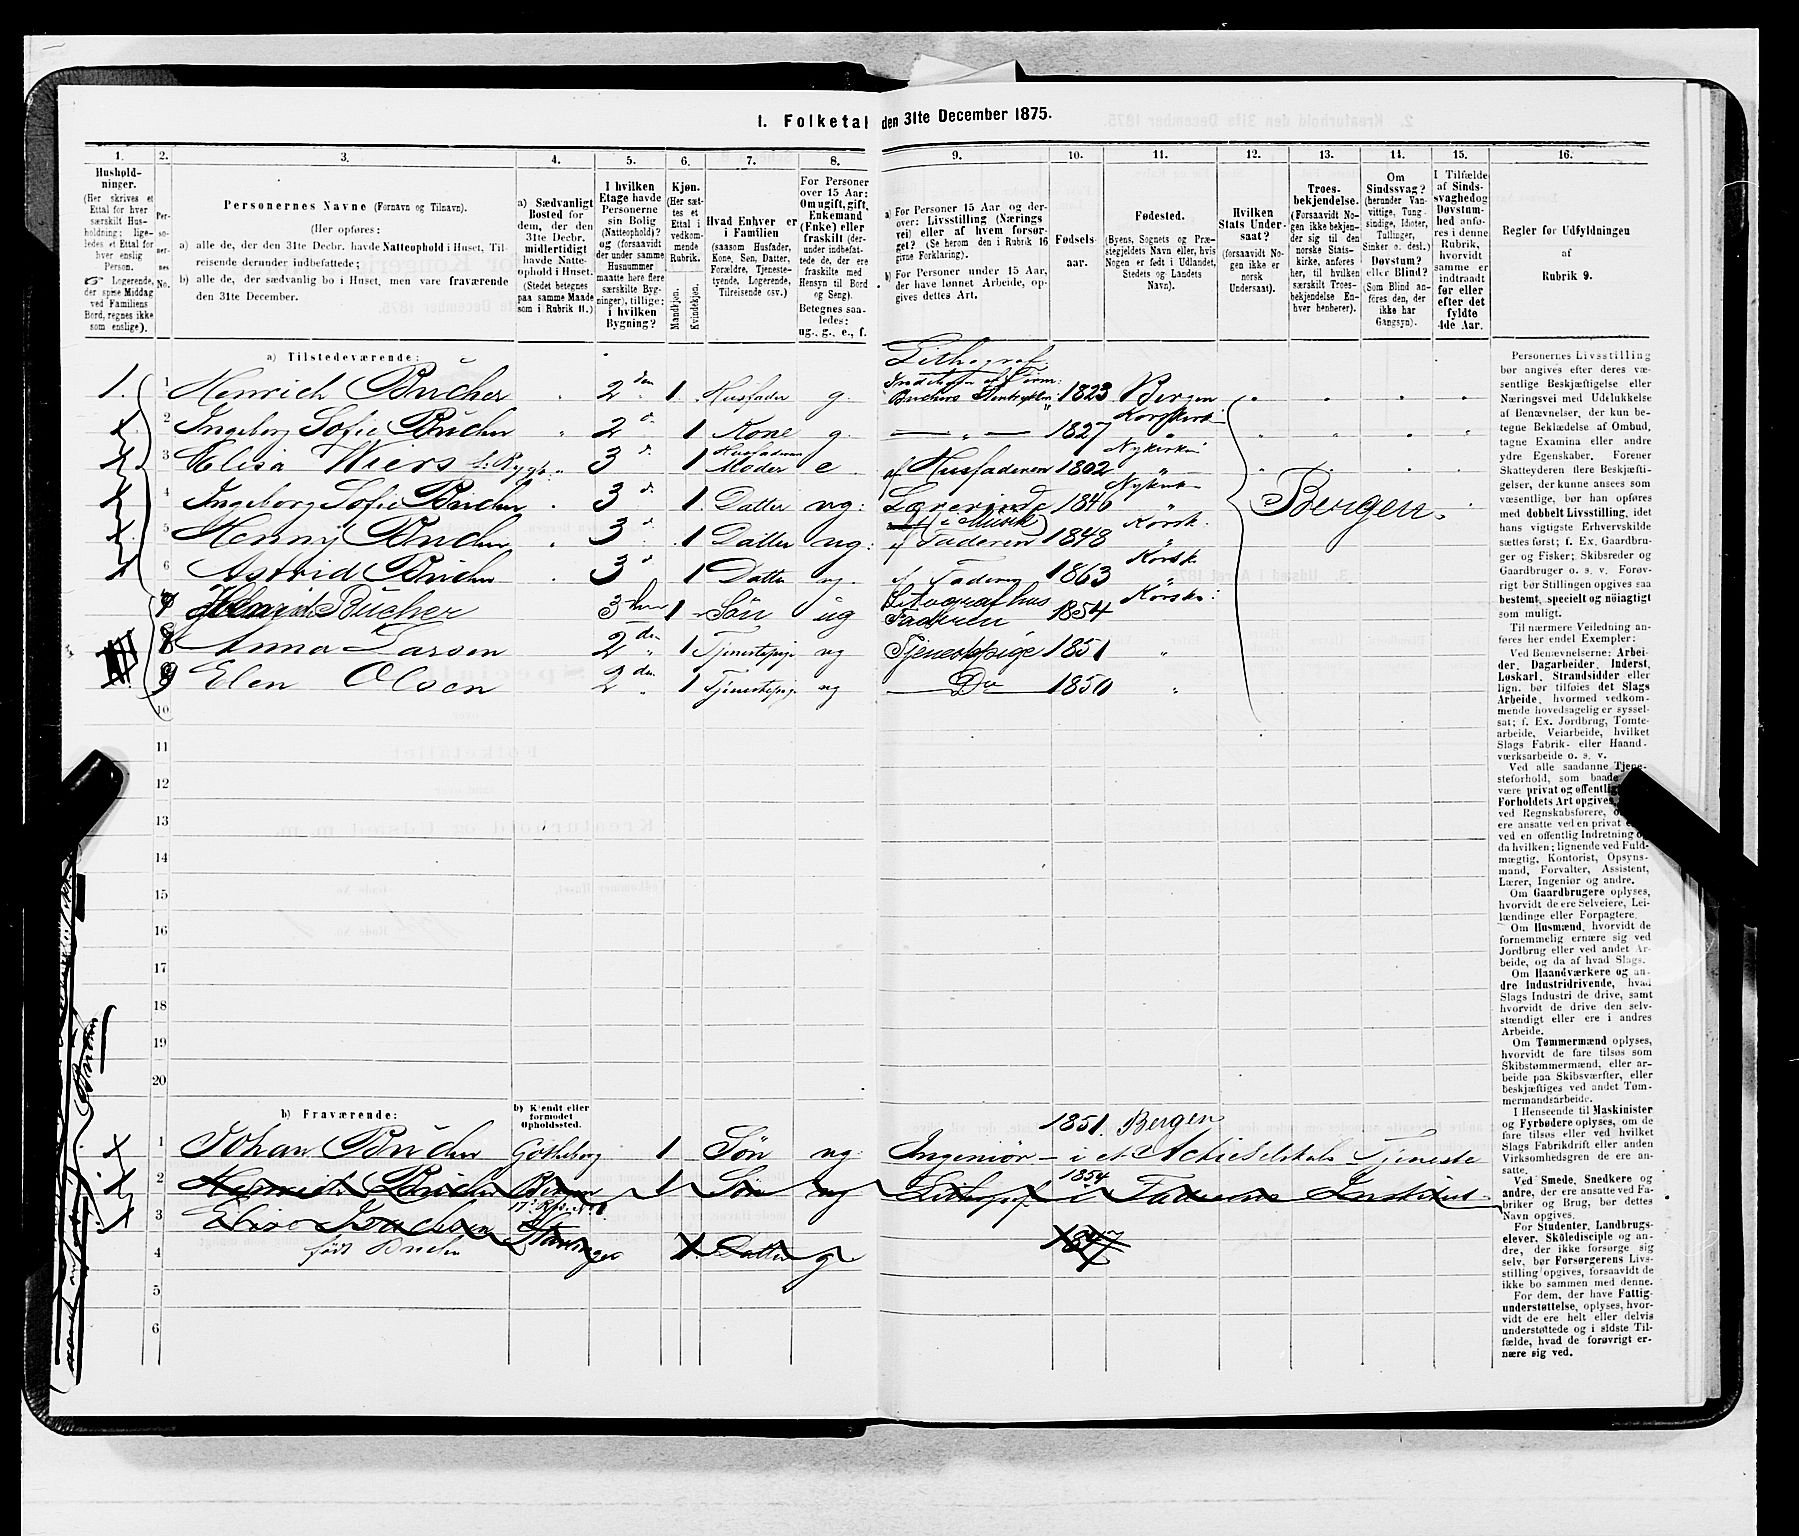 1. Folketal den 31te December 1875.
1.
Hushold-
ninger.
(Her skrives et
Ettal for hver
særskilt Hus-
holdning; lige-
ledes et Ettal for
hver enslig
Person.
Logerende,
der spise Middag
ved Familiens
Bord, regnes ikke
som enslige).
2.
Per-
so-
ner-
nes
No.
3.
Personernes Navne (Fornavn og Tilnavn).
(Her opføres:
a) alle de, der den 31te Decbr. havde Natteophold i Huset, Til-
reisende derunder indbefattede;
b) alle de, der sædvanlig bo i Huset, men vare fraværende
den 31te December.
4.
a) Sædvanligt
Bosted for
dem, der den
31te Decbr.
midlertidigt
havde Natte-
ophold i Huset.
(Stedet betegnes
paa samme Maade
som i Rubrik 11.)
5.
I hvilken
Etage havde
Personerne
sin Bolig
(Natteophold)?
og (forsaavidt
der under samme
Husnummer
maatte høre flere
særskilte Byg-
ninger), tillige:
i hvilken
Bygning?
6.
Kjøn.
(Her sæt-
tes et
Ettal i
vedkom-
mende
Rubrik.)
Mandkjøn.
Kvindekjøn.
7.
Hvad Enhver er
i Familien
(saasom Husfader,
Kone, Søn, Datter,
Forældre, Tjeneste-
tyende, Logerende,
Tilreisende osv.)
8.
For Personer
over 15 Aar:
Om ugift, gift,
Enkemand
(Enke) eller
fraskilt (der-
under indbefat-
tede de, der ere
fraskilte med
Hensyn til Bord
og Seng).
Betegnes saa-
ledes:
ug., g., e., f.
9.
a) For Personer 15 Aar og der-
over: Livsstilling (Nærings
vei) eller af hvem forsør-
get? (Se herom den i Rubrik 16
givne Forklaring).
b) For Personer under 15 Aar,
der have lønnet Arbeide, op-
gives dettes Art.
10.
Fødsels-
aar.
11.
Fødested.
(Byens, Sognets og Præ-
stegjeldets Navn eller, hvis
Nogen er født i Udlandet,
Stedets og Landets
Navn).
12.
Hvilken
Stats Under-
saat?
(forsaavidt No-
gen ikke er
norsk
Undersaat).
13.
Troes-
bekjendelse.
(Forsaavidt No-
gen ikke bekjen-
der sig til den
norske Stats-
kirke, anføres
her, til hvilken
særskilt Troes-
bekjendelse En-
hver henhører).
14.
Om
Sindssvag?
(herunder Van-
vittige, Tung-
sindige, Idioter,
Tullinger,
Sinker o. desl.)
Døvstum?
eller Blind?
(Som Blind an-
føres den, der
ikke har
Gangsyn).
15.
I Tilfælde
af Sinds-
svaghed og
Døvstum-
hed anfø-
res i denne
Rubrik,
hvorvidt
samme er
indtraadt
før eller
efter det
fyldte
4de Aar.
16.
Regler for Udfyldningen
af
Rubrik 9.
a) Tilstedeværende:
Lithograf
1. 1 Henrich Bücher 2den 1 Husfader g. 1823 Bergen
2 Ingeborg Sofie Bücher 2 d. 1 Kone g. — " — 1827 Korskirk
3 Elisa Wiers 3 d. 1 Husfaderens Moder e. af Husfaderen 1802 Nykirk
4 Ingeborg Sofie Bücher 3 d. 1 Datter ug: Lærerinde i Musik 1846 Nykirk
5 Henny Bücher 3 d. 1 Datter ug: af Faderen 1848 Korsk:
6 Astrid Bücher 3 d. 1 Datter ug. af Faderen 1863 Korsk
7 Henrich Bücher 3den 1 Søn ug Litograf hos Faderen 1854 Korsk:
8 Anna Larsen 2den 1 Tjenestepige ug Tjenestepige 1851 "
9 Elen Olsen 2den 1 Tjenestepige ug Do 1850 "
Bergen.
10
11
12
13
14
15
16
17
18
19
20
b) Fraværende:
b) Kjendt eller
formodet
Opholdssted.
1851. Bergen
1 Johan Bücher Gøtheborg 1 Søn ug. Ingeniør - i et Actieselskabs Tjeneste
2 Henrich Bücher Bergen 1 Søn ug Lithograf 1854 i Faderens
3 Elise
4 født Bücher Stavanger 1 Datter g 1847
5
6
Personernes Livsstilling
bør angives efter deres væ-
sentlige Beskjæftigelse eller
Næringsvei med Udelukkelse
af Benævnelser, der kun be-
tegne Beklædelse af Ombud,
tagne Examina eller andre
ydre Egenskaber. Forener
Skatteyderen flere Beskjæfti-
gelser, der kunne ansees som
væsentlige, bør han opføres
med dobbelt Livsstilling, idet
hans vigtigste Erhvervskilde
sættes først; f. Ex. Gaardbru-
ger og Fisker; Skibsreder og
Gaardbruger o. s. v. Forøv-
rigt bør Stillingen opgives saa
bestemt, specielt og nøiagtigt
som muligt.
Til nærmere Veiledning an-
føres her endel Exempler:
Ved Benævnelserne: Arbei-
der, Dagarbeider, Inderst,
Løskarl, Strandsidder eller
lign. bør tilføies det Slags
Arbeide, hvormed vedkom-
mende hovedsagelig er syssel-
sat; f. Ex. Jordbrug, Tomte-
arbeide, Veiarbeide, hvilket
Slags Fabrik- eller Haand-
værksarbeide o. s. v.
Ved alle saadanne Tjene-
steforhold, som baade
være privat og offentlig
Forholdets Art opgives,
ved Regnskabsførere,
ere ansatte ved en privat
ved en offentlig Indretning
da hvilken; lignende ved Fuld-
mægtig, Kontorist, Opsyns-
mand, Forvalter, Assistent,
Lærer, Ingeniør og andre.
Om Gaardbrugere oplyses,
hvorvidt de ere Selveiere, Lei-
lændinge eller Forpagtere.
Om Husmænd, hvorvidt de
fornemmelig ernære sig ved
Jordbrug eller ved andet Ar-
beide, og da af hvad Slags.
Om Haandværkere og an-
dre Industridrivende, hvad
Slags Industri de drive, samt
hvorvidt de drive den selv-
stændigt eller ere i andres
Arbeide.
Om Tømmermænd oplyses,
hvorvidt de fare tilsøs som
Skibstømmermænd, eller ar-
beide paa Skibsværfter, eller
beskjæftiges ved andet Tøm-
mermandsarbeide.
I Henseende til Maskinister
og Fyrbødere oplyses, om de
fare tilsøs eller ved hvilket
Slags Fabrikdrift eller anden
Virksomhedsgren de ere an-
satte.
Ved Smede, Snedkere og
andre, der ere ansatte ved Fa-
briker og Brug, bør dettes
Navn opgives.
For Studenter, Landbrugs-
elever, Skoledisciple og an-
dre, der ikke forsørge sig
selv, bør Forsørgerens Livs-
stilling opgives, forsaavidt de
ikke bo sammen med denne.
For dem, der have Fattig-
understøttelse, oplyses, hvor-
vidt de ere helt eller delvis
understøttede og i sidste Til-
fælde, hvad de forøvrigt er-
nære sig ved.